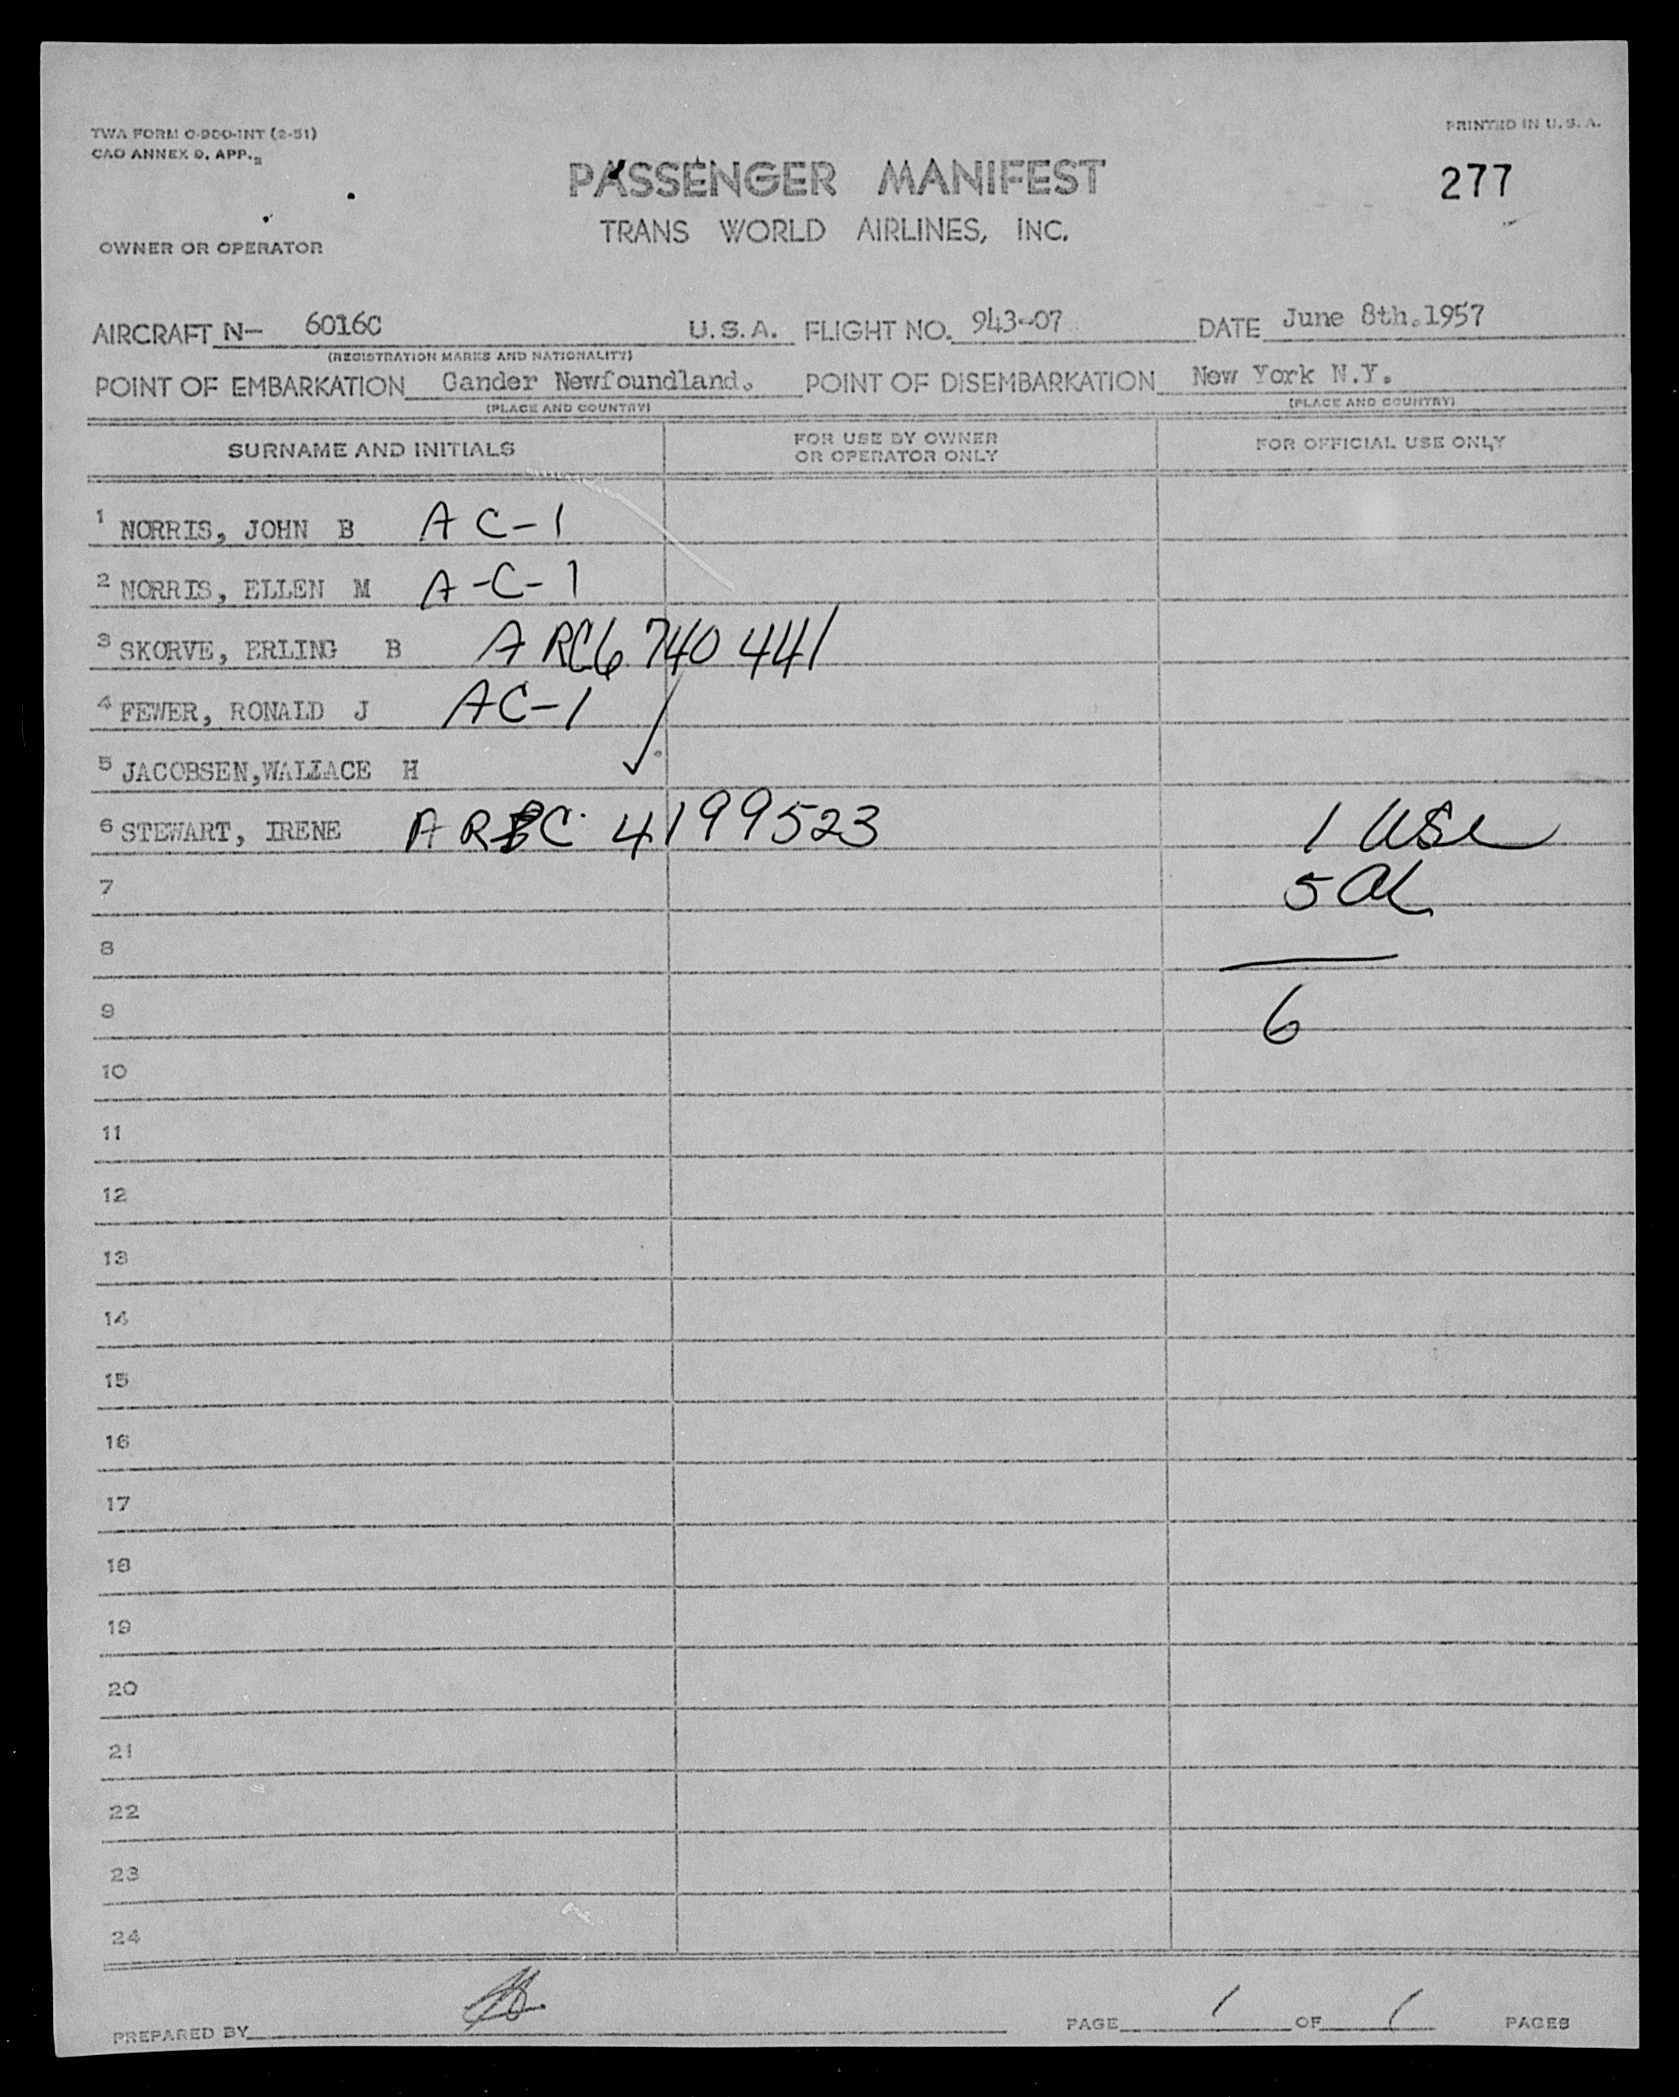 TWA FORM O-900-INT (2-51)
CAO ANNEX 9. APP. 2
PRINTED IN U. S. A.
PASSENGER MANIFEST
277
TRANS WORLD AIRLINES, INC.
OWNER OR OPERATOR
AIRCRAFT N- 6016C U.S.A. FLIGHT NO. 943-07 DATE June 8th.1957
(REGISTRATION MARKS AND NATIONALITY)
POINT OF EMBARKATION Gander Newfoundland. POINT OF DISEMBARKATION New York N.Y.
(PLACE AND COUNTRY) (PLACE AND COUNTRY)
SURNAME AND INITIALS FOR USE BY OWNER OR OPERATOR ONLY FOR OFFICIAL USE ONLY
1 NORRIS, JOHN B A C-1
2 NORRIS, ELLEN M A-C-1
3 SKORVE, ERLING B A RC6 740 441
4 FEWER, RONALD J AC-1
5 JACOBSEN,WALLACE H
6 STEWART, IRENE A C 4199523 1 USC
7 5 Al
8
9 6
10
11
12
13
14
15
16
17
18
19
20
21
22
23
24
PREPARED BY PAGE 1 OF 1 PAGES